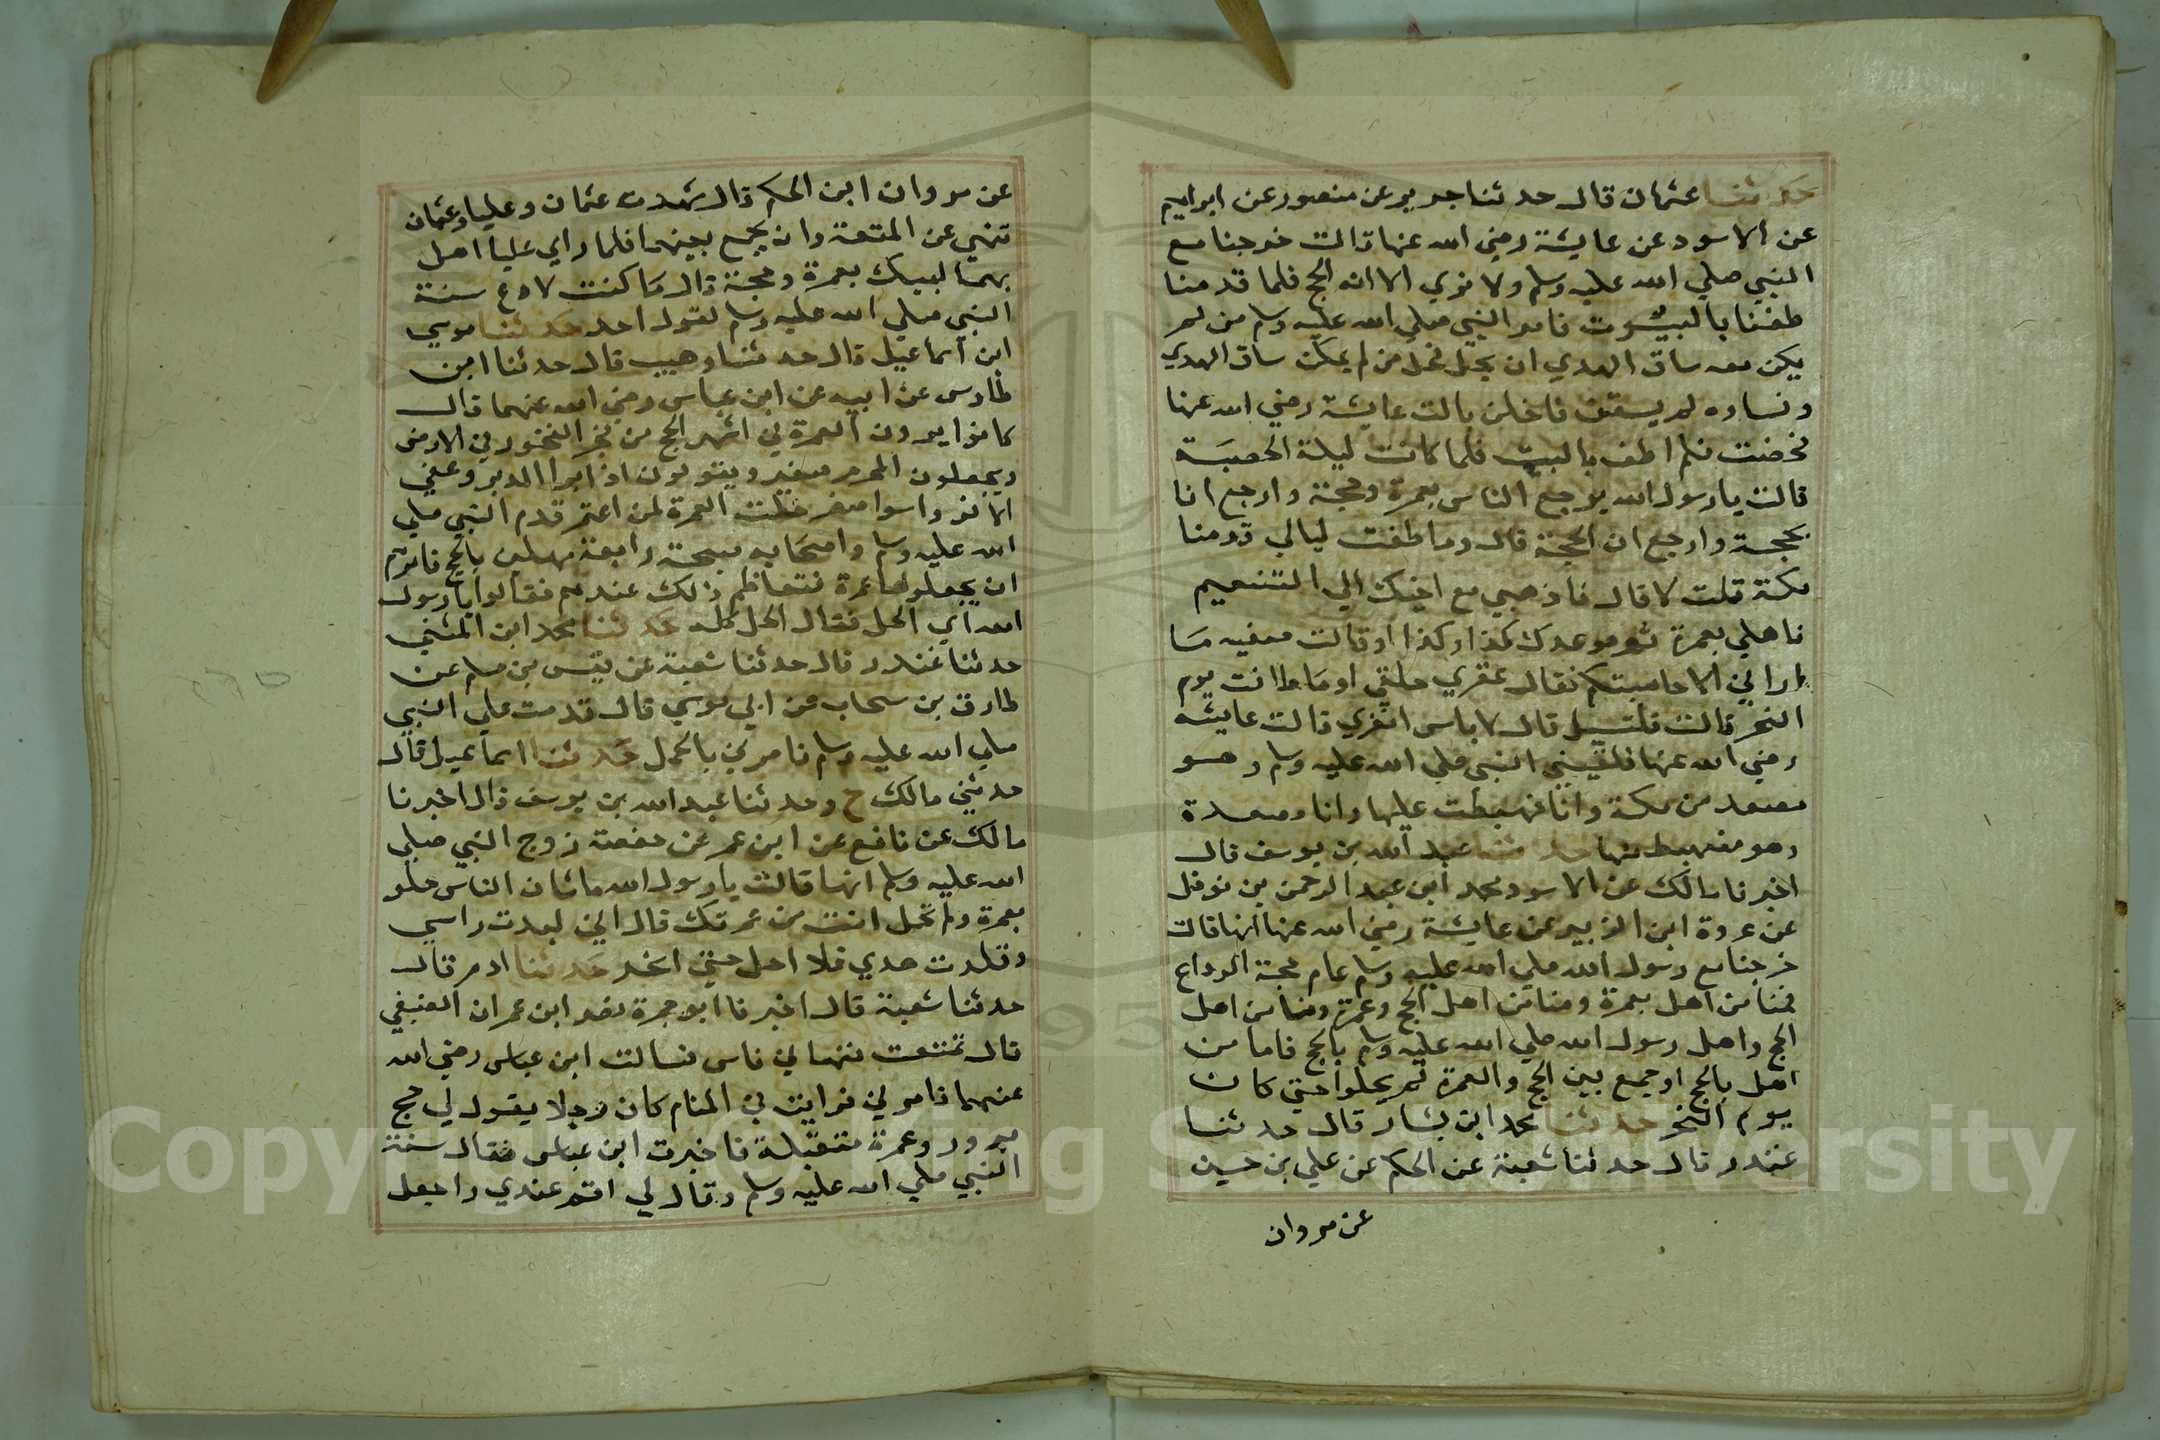 حدثنا عثمان قال حدثنا جرير عن منصور عن ابراهيم
عن الاسود عن عايشة رضي الله عنها قالت خرجنا مع
النبي صلي الله عليه وسلم ولا نري الا انه الحج فلما قدمنا
طفنا بالبيت فامر النبي صلي الله عليه وسلم من لم
يكن معه ساق الهدي ان يحل فحل من لم يكن ساق الهدي
ونساوه لم يسقن فاحللن قالت عايشة رضي الله عنها
فحضت فلم اطف بالبيت فلما كانت ليلة الحصبة
قالت يا رسول الله يرجع الناس بعمرة وحجة وارجع انا
بحجة وارجع ان الحجة قال وما طفت ليالي قدمنا
مكة قلت لا قال فاذهبي مع اخيك الي التنعيم
فاهلي بعمرة ثم موعدك كذا وكذا او قالت صفيه مَا
اراني الا حابستكم فقال عقري حلقي او مَا طانت يوم
النحر قالت قلت بلي قال لا باس انفري قالت عايشه
رضي الله عنها فلقيني النبي صلي الله عليه وسلم وهو
مصعد من مكة وانا منهبطت عليها وانا مصعدة
وهو منهبط منها حدثنا عبد الله بن يوسف قال
اخبرنا مالك عن الاسود محمد ابن عبد الرحمن بن نوفل
عن عروة ابن الزبير عن عايشة رضي الله عنها انها قالت
خرجنا مع رسول الله صلي الله عليه وسلم عام حجة الوداع
فمنا من اهل بعمرة ومنا من اهل الحج وعمرة ومنا من اهل
الحج واهل رسول الله صلي الله عليه وسلم بالحج فاما من
اهل بالحج او جمع بين الحج والعمرة لم يحلوا حتي كان
يوم النحر حدثنا محمد ابن بشار قال حدثنا
غندر قال حدثنا شعبة عن الحكم عن علي بن حسين
عن مروان
عن مروان ابن الحكم قال شهدت عثمان وعليا وعثمان
تنهي عن المتعة وان يجمع بينهما فلما راي عليا اهل
بهما لبيك بعمرة وحجة قال مَا كنت لادع سنة
النبي صلي الله عليه وسلم لقول احد حدثنا موسي
ابن اسماعيل قال حدثنا وهيب قال حدثنا ابن
طاوس عن ابيه عن ابن عباس رضي الله عنهما قال
كانوا يرون العمرة في اشهر الحج من فجر الفجور في الارض
ويجعلون المحرم صفر ويقولون اذا برا الدبر وعفي
الاثر واسوا صفر حلت العمرة لمن اعتمر قدم النبي صلي
الله عليه وسلم واصحَابه صبحة رابعة مهلين بالحج فامرهم
ان يجعلوها عمرة فتعاظم ذلك عندهم فقالوا يا رسول
الله اي الحل فقال الحل كله حدثنا محمد ابن المثني
حدثنا غندر قال حدثنا شعبة عن قيس بن مسلم عن
طارق بن سحاب عن ابي موسي قال قدمت علي النبي
صلي الله عليه وسلم فامرني بالحل حدثنا اسماعيل قال
حدثني مالك ح وحدثنا عبد الله بن يوسف قال اخبرنا
مالك عن نافع عن ابن عمر عن حفصة زوج النبي صلي
الله عليه وسلم انها قالت يا رسول الله ما شان الناس حلو
بعمرة ولم تحل انت من عمرتك قال اني لبدت راسي
وقلدت هدي فلا احل حتي انحر حدثنا ادم قال
حدثنا شعبة قال اخبرنا ابو جمرة نصر ابن عمران الضبغي
قال تمتعت فنهاني ناس فسالت ابن عباس رضي الله
عنهما فامرني فرايت في المنام كان رجلا يقول لي حج
مبرور وعمرة متقبلة فاخبرت ابن عباس فقال سنة
النبي صلي الله عليه وسلم وقال لي اقم عندي واجعل